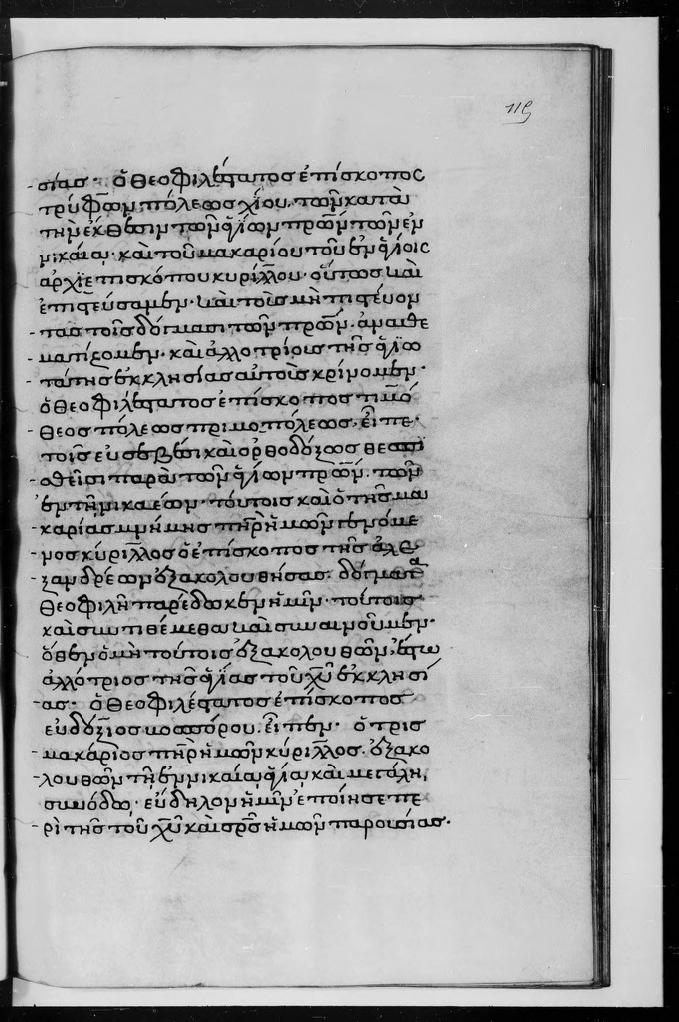 115
σίας· ὁ θεοφιλέστατος ἐπίσκοπος
τρύφων πόλεως χίου. τῶν κατὰ
τὴν ἔκθεσιν τῶν ἁγίων πρων τῶν ἐν
νικαία· καὶ τοῦ μακαρίου τοῦ ἐν ἁγίοις
ἀρχιεπισκόπου κυρίλλου· οὕτως καὶ
ἐπιστεύσαμεν· καὶ τοῖς μὴ πιστεύον
τας τοῖς δόγμασι τῶν πρων. ἀναθε
ματίζομεν· καὶ ἀλλοτρίοις τῆς ἁγιω
τάτης ἐκκλησίας αὐτοῖς κρίνομεν·
ὁ θεοφιλέστατος ἐπίσκοπος τιμό
θεος πόλεως πριμοπόλεως. εἶπε·
τοῖς εὐσεβέσι καὶ ὀρθοδόξως θεσπι
σθεῖσι παρὰ τῶν ἁγίων πρων. τῶν
ἐν τῆ νικαέων· τούτοις καὶ ὁ τῆς μα
καρίας μνήμης πηρ ἡμῶν γενόμε
νος κύριλλος ὁ ἐπίσκοπος τῆς ἀλε
ξανδρέων ἐξακολουθήσας. δόγματα
θεοφιλῆ παρέδωκεν ἡμῖν· τούτοις
καὶ συντιθέμεθα καὶ συναινοῦμεν·
ὅθεν ὁ μὴ τούτοις ἐξακολουθῶν, ἔστω
ἀλλότριος τῆς ἁγίας τοῦ χυ ἐκκλησί
ας· ὁ θεοφιλέστατος ἐπίσκοπος
εὐδόξιος μοασόρου. εἶπεν· ὁ τρις
μακάριος πηρ ἡμῶν κύριλλος. ἐξακο
λουθῶν τῆ ἐν νικαία, ἁγία, καὶ μεγάλη,
συνόδω· εὔδηλον ἡμῖν ἐποίησε πε
ρὶ τῆς τοῦ χυ καὶ σρς ἡμῶν παρουσίας.